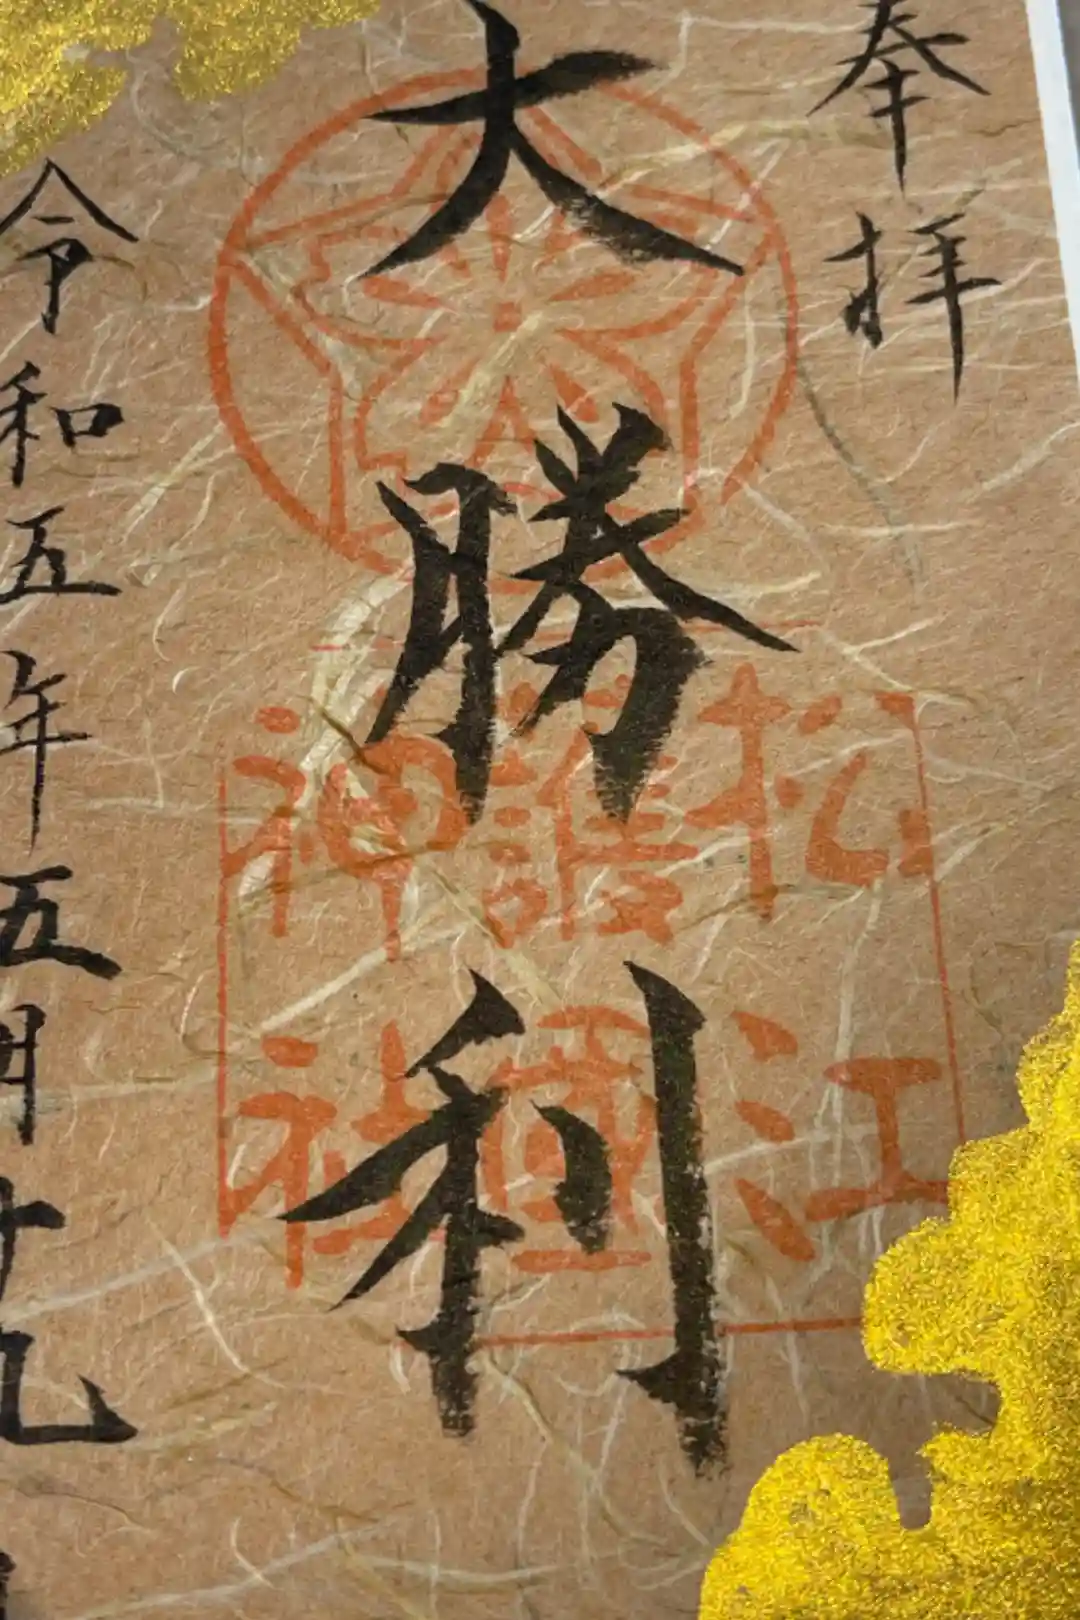 奉拝
大勝利
松江
護國
神社
令和五年五月廿九